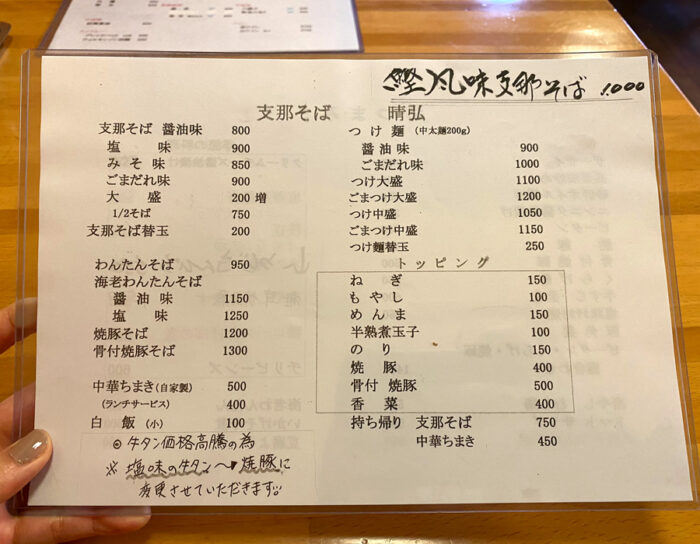 鰹風味支那そば 1.000
支那そば 晴弘
支那そば 醤油味 800
塩 味 900
みそ 味 850
ごまだれ味 900
大 盛 200 増
1/2そば 750
支那そば替玉 200
わんたんそば 950
海老わんたんそば
醤 油 味 1150
塩 味 1250
焼豚そば 1200
骨付焼豚そば 1300
中華ちまき(自家製) 500
(ランチサービス) 400
白 飯 (小) 100
◎ 牛タン価格高騰の為
※ 塩味の牛タン〜焼豚に
変更させていただきます。
つ け 麺 (中太麺200g)
醤 油 味 900
ごまだれ味 1000
つけ大盛 1100
ごまつけ大盛 1200
つけ中盛 1050
ごまつけ中盛 1150
つけ麺替玉 250
ト ッ ピ ン グ
ね ぎ 150
も や し 100
め ん ま 150
半熟煮玉子 100
の り 150
焼 豚 400
骨付 焼豚 500
香 菜 400
持ち帰り 支那そば 750
中華ちまき 450